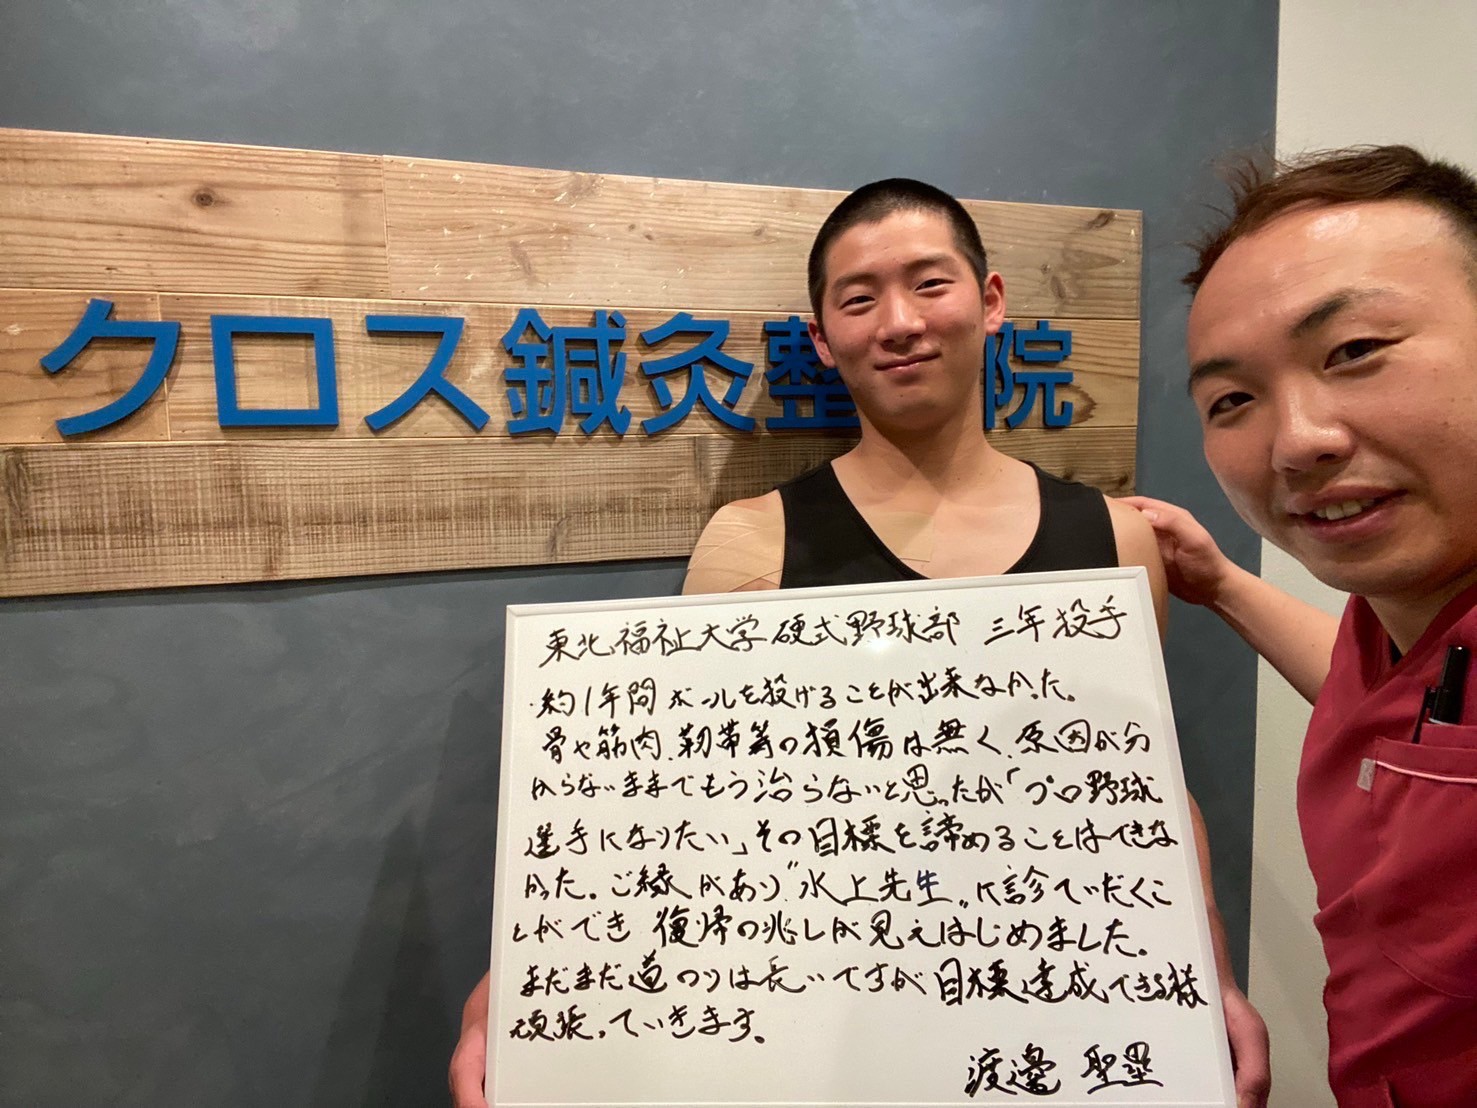 クロス鍼灸整 院
東北福祉大学硬式野球部 三年投手
約1年間ボールを投げることが出来なかった。
骨や筋肉、靭帯等の損傷は無く、原因が分
からないままでもう治らないと思ったが「プロ野球
選手になりたい」その目標を諦めることはできな
かった。ご縁があり"水上先生"に診ていだくこ
とができ 復帰の兆しが見えはじめました。
まだまだ道のりは長いですが目標達成できる様
頑張っていきます。
渡邊 聖塁